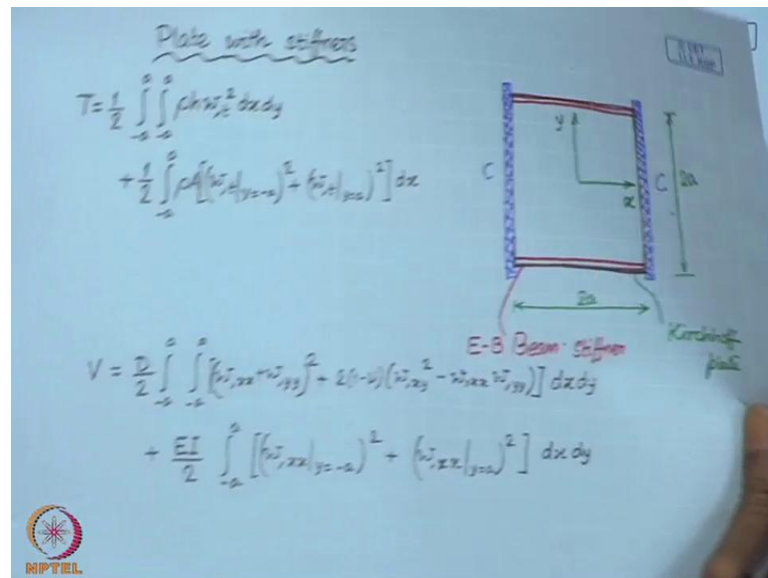 Plate with stiffners
T = 1/2 ∫_{-a}^{a} ∫_{-a}^{a} ρh w,t² dx dy
+ 1/2 ∫_{-a}^{a} ρA[(w,t|y=-a)² + (w,t|y=a)²] dx
y
x
C
C
2a
2a
E-B Beam-stiffner
Kirchhoff plate
V = D/2 ∫_{-a}^{a} ∫_{-a}^{a} [(w,xx + w,yy)² + 2(1-ν)(w,xy² - w,xx w,yy)] dx dy
+ EI/2 ∫_{-a}^{a} [(w,xx|y=-a)² + (w,xx|y=a)²] dx dy
NPTEL